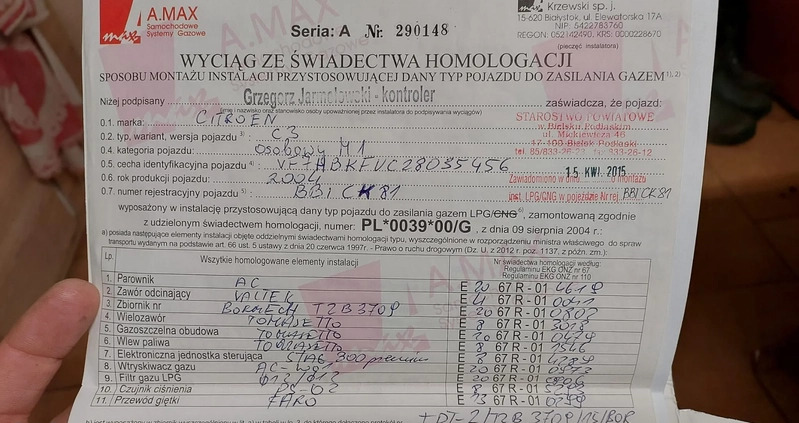 A.MAX
Samochodowe
Systemy Gazowe
max
Seria: A Nr. 290148
Krzewski sp. j.
15-620 Białystok, ul. Elewatorska 17A
NIP: 5422783760
REGON: 052142490, KRS: 0000228670
(pieczęć instalatora)
WYCIĄG ZE ŚWIADECTWA HOMOLOGACJI
SPOSOBU MONTAŻU INSTALACJI PRZYSTOSOWUJĄCEJ DANY TYP POJAZDU DO ZASILANIA GAZEM 1), 2)
Niżej podpisany Grzegorz Jarmoławski - kontroler zaświadcza, że pojazd:
(imię i nazwisko oraz stanowisko osoby upoważnionej przez instalatora do podpisywania wyciągów)
0.1. marka: CITROEN
0.2. typ, wariant, wersja pojazdu 3) C3
0.4. kategoria pojazdu: OSOBOWY M1
0.5. cecha identyfikacyjna pojazdu 4):
0.6. rok produkcji pojazdu: 2004
0.7. numer rejestracyjny pojazdu 5): BBI CK81
STAROSTWO POWIATOWE
w Bielsku Podlaskim
ul. Mickiewicza 46
17-100 Bielsk Podlaski
Zawiadomiono w dniu 15 KWI. 2015 o montażu
inst. LPG/CNG w pojeździe Nr rej. BBI CK81
wyposażony w instalację przystosowującą dany typ pojazdu do zasilania gazem LPG/CNG 6), zamontowaną zgodnie
z udzielonym świadectwem homologacji, numer: PL*0039*00/G , z dnia 09 sierpnia 2004 r.:
a) posiada następujące elementy instalacji objęte oddzielnymi świadectwami homologacji typu, wyszczególnione w rozporządzeniu ministra właściwego do spraw
transportu wydanym na podstawie art. 66 ust. 5 ustawy z dnia 20 czerwca 1997r. - Prawo o ruchu drogowym (Dz. U. z 2012 r. poz. 1137, z późn. zm.):
Lp. Wszystkie homologowane elementy instalacji Nr świadectwa homologacji według:
Regulaminu EKG ONZ nr 67
Regulaminu EKG ONZ nr 110
1. Parownik AC E 20 67 R - 01 4619
2. Zawór odcinający VALTEK E 4 67 R - 01
3. Zbiornik nr E 20 67 R - 01 0807
4. Wielozawór TOMASETTO E 8 67 R - 01 3018
5. Gazoszczelna obudowa TOMASETTO E 20 67 R - 01
6. Wlew paliwa TOMASETTO E 8 67 R - 01
7. Elektroniczna jednostka sterująca STAG 300 premium E 8 67 R - 01
8. Wtryskiwacz gazu E 20 67 R - 01
9. Filtr gazu LPG E 20 67 R - 01
10. Czujnik ciśnienia PS-02 E 8 67 R - 01
11. Przewód giętki FARO E 13 67 R - 01